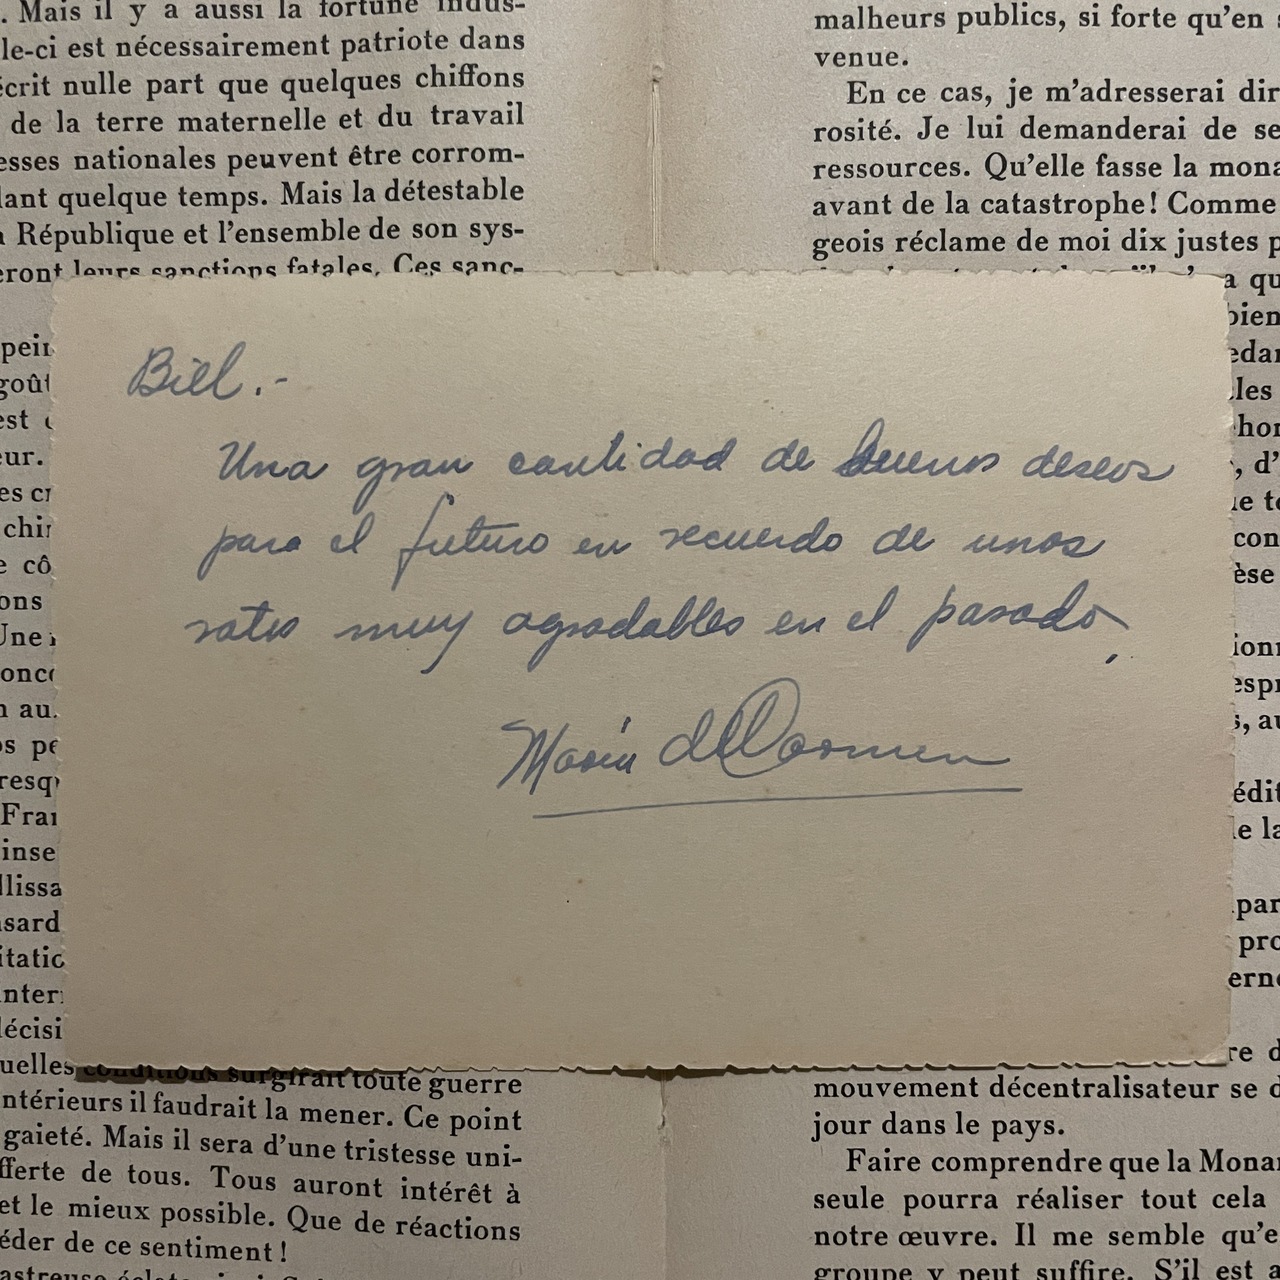 . Mais il y a aussi la fortune indus-
le-ci est nécessairement patriote dans
écrit nulle part que quelques chiffons
de la terre maternelle et du travail
esses nationales peuvent être corrom-
dant quelque temps. Mais la détestable
République et l'ensemble de son sys-
eront leurs sanctions fatales. Ces sanc-
pein
goût
est
eur.
es
chir
e cô
ons
Une
n au.
os pe
resq
Fran
inse
llissa
sard
itatic
nter
décisi
uelles conditions surgirait toute guerre
ntérieurs il faudrait la mener. Ce point
gaieté. Mais il sera d'une tristesse uni-
fferte de tous. Tous auront intérêt à
et le mieux possible. Que de réactions
éder de ce sentiment !
Biel.-
Una gran cantidad de buenos deseos
para el futuro en recuerdo de unos
ratos muy agradables en el pasado,
María del Carmen
malheurs publics, si forte qu'en
venue.
En ce cas, je m'adresserai dir
rosité. Je lui demanderai de se
ressources. Qu'elle fasse la mona
avant de la catastrophe! Comme
geois réclame de moi dix justes p
a qu
bien
edan
les
hor
, d'
ue te
con
èse
ionn
espr
s, au
édit
e la
par
pro
erne
re d
mouvement décentralisateur se d
jour dans le pays.
Faire comprendre que la Monar
seule pourra réaliser tout cela
notre œuvre. Il me semble qu'e
groupe y peut suffire. S'il est a